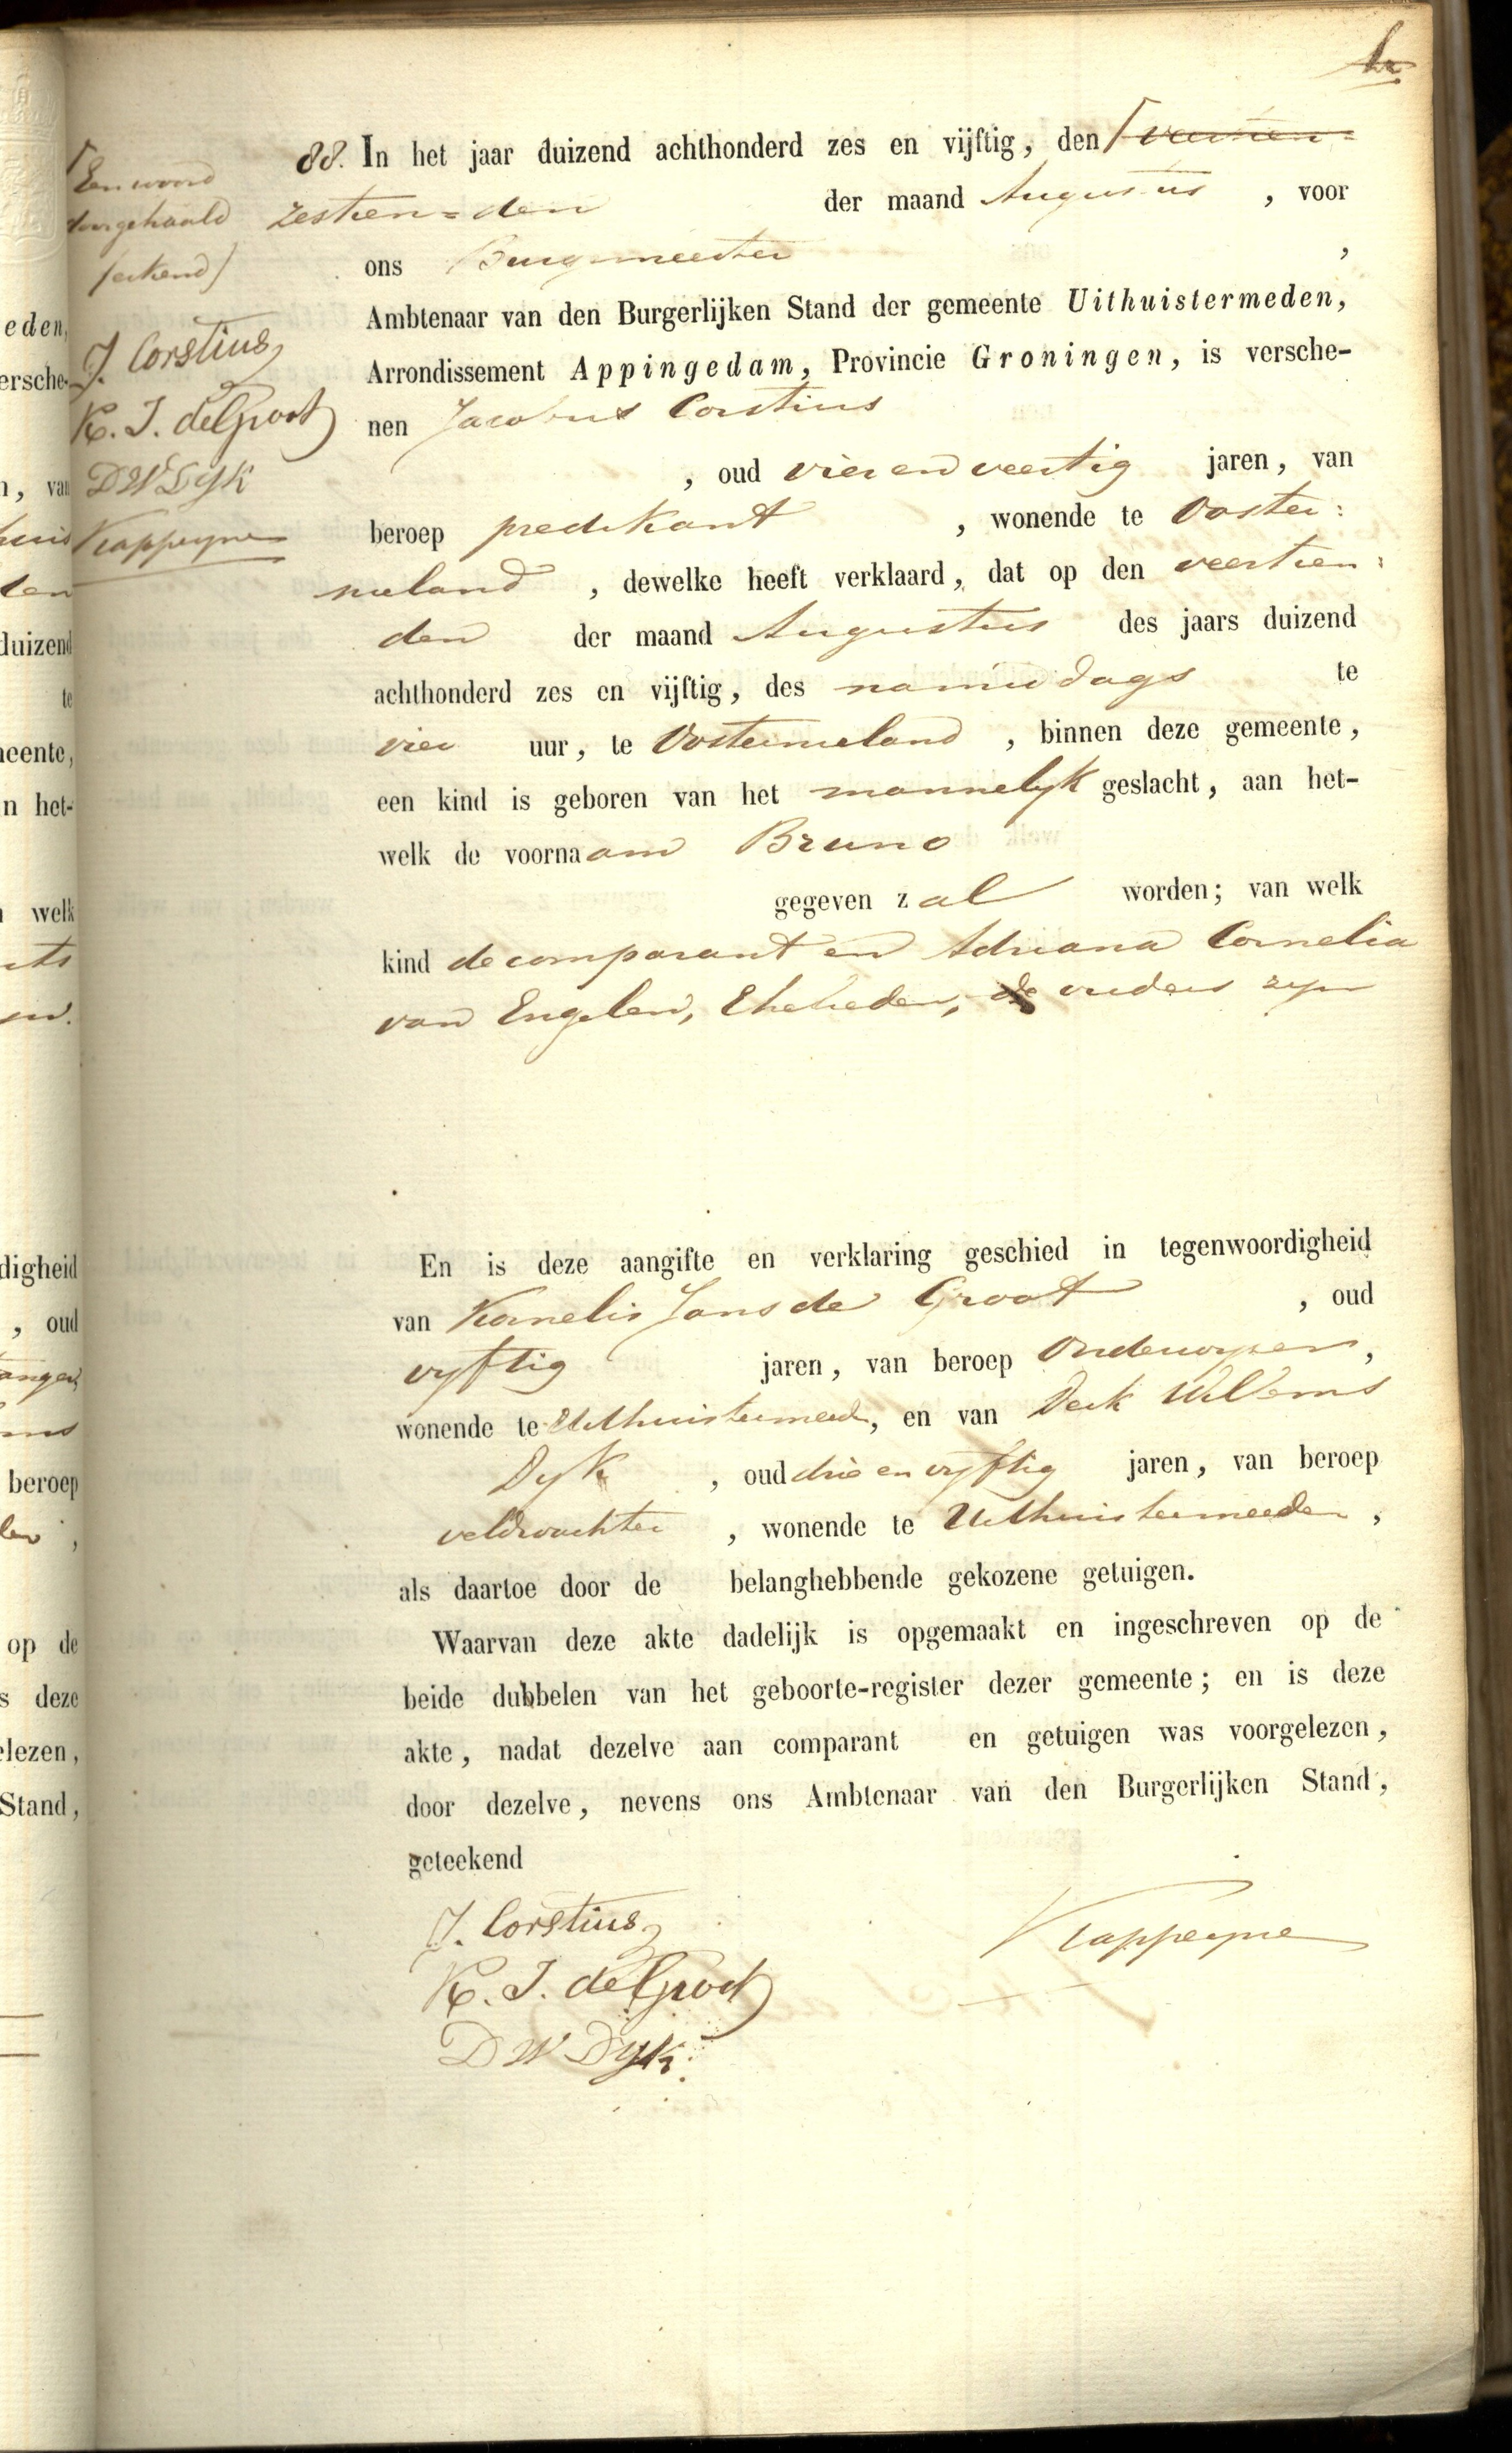 88. In het jaar duizend achthonderd zes en vijftig, den
zestien=den der maand Augustus, voor
ons Burgemeester,
Ambtenaar van den Burgerlijken Stand der gemeente Uithuistermeden,
Arrondissement Appingedam, Provincie Groningen, is versche-
nen Jacobus Corstius
, oud vier en veertig jaren, van
beroep predikant, wonende te Ooster:
nieland, dewelke heeft verklaard, dat op den veertien:
den der maand Augustus des jaars duizend
achthonderd zes en vijftig, des namiddags te
vier uur, te Oosternieland, binnen deze gemeente,
een kind is geboren van het mannelyk geslacht, aan het-
welk de voornaam Bruno
gegeven zal worden; van welk
kind de comparant en Adriana Cornelia
van Engelen, Ehelieden, de ouders zyn
En is deze aangifte en verklaring geschied in tegenwoordigheid
van Kornelis Jans de Groot, oud
vyftig jaren, van beroep Onderwyzer,
wonende te Uithuistermeede, en van Derk Willems
Dyk, oud drie en vyftig jaren, van beroep
veldwachter, wonende te Uithuistermeeden,
als daartoe door de belanghebbende gekozene getuigen.
Waarvan deze akte dadelijk is opgemaakt en ingeschreven op de
beide dubbelen van het geboorte-register dezer gemeente; en is deze
akte, nadat dezelve aan comparant en getuigen was voorgelezen,
door dezelve, nevens ons Ambtenaar van den Burgerlijken Stand,
geteekend
J. Corstius
K. J. de Groot
D W Dyk
Kappeyne
Een woord
doorgehaald
J. Corstius
K. J. de Groot
D W Dyk
Kappeyne
eden,
ersche-
n, van
duizend
te
neente,
n het-
welk
digheid
, oud
beroep
op de
s deze
elezen,
Stand,